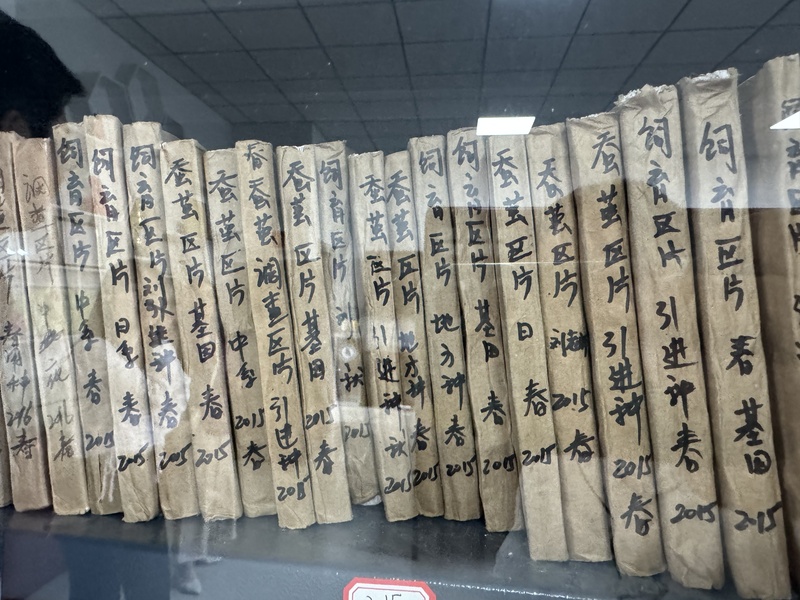 调查区片
饲育区片 中季 春 2015
饲育区片 日季 春 2015
饲育区片 刘引进种 春 2015
蚕茧区片 基因 春 2015
蚕茧区片 中季 2015 春
春蚕茧调查区片 引进种 2015
蚕茧区片 基因 2015 春
饲育区片 刘 秋 2015
蚕茧区片 引进种 秋 2015
蚕茧区片 地方种 春 2015
饲育区片 地方种 春 2015
饲育区片 基因 春 2015
蚕茧区片 日 春 2015
蚕茧区片 刘 2015 春
蚕茧区片 引进种 2015 春
饲育区片 引进种 春 2015
饲育区片 春 基因 2015